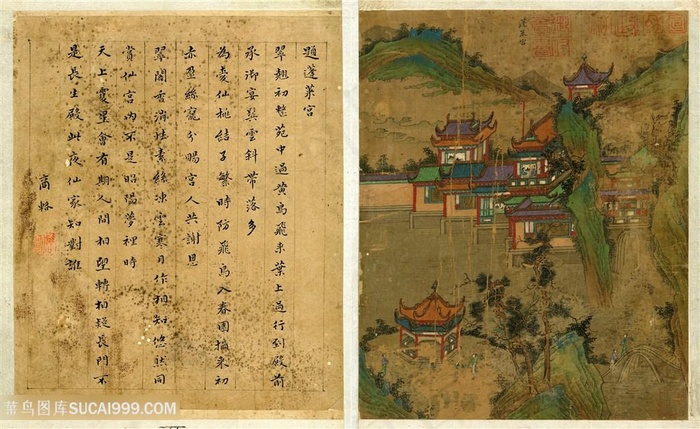 題蓬萊宮
翠翹初整苑中過黃鳥飛來葉上過行到殿前
承御宴鬢雲斜帶落多
為愛仙桃結子繁時防飛鳥入春園摘來初
赤盈絲籠分賜宮人共謝恩
翠閣香消炷素絲凍雲寒月作相知悠然閒
賞仙宮內不是昭陽夢裡時
天上雙星會有期人間相望轉相疑長門不
是長生殿此夜仙家知對誰
商輅
蓬萊宮
菜鸟图库SUCAI999.COM